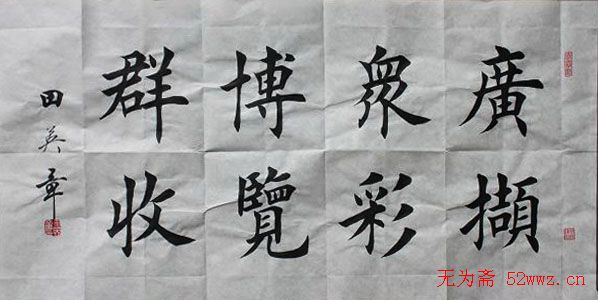 廣擷
衆彩
博覽
群收
田英章
无为斋 52wwz.cn